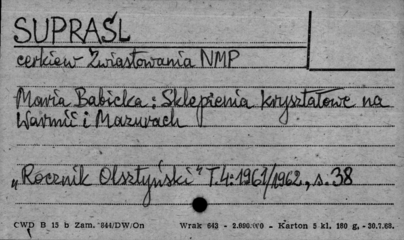 SUPRAŚL
cerkiew Zwiastowania NMP
Maria Babicka: Sklepienia kryształowe na
Warmii i Mazurach
„Rocznik Olsztyński" T.4: 1961/1962, s. 38
CWD B 15 b Zam. 844/DW/On Wrak 642 - 2.000.000 - Karton 5 kl. 180 g. - 30.7.68.